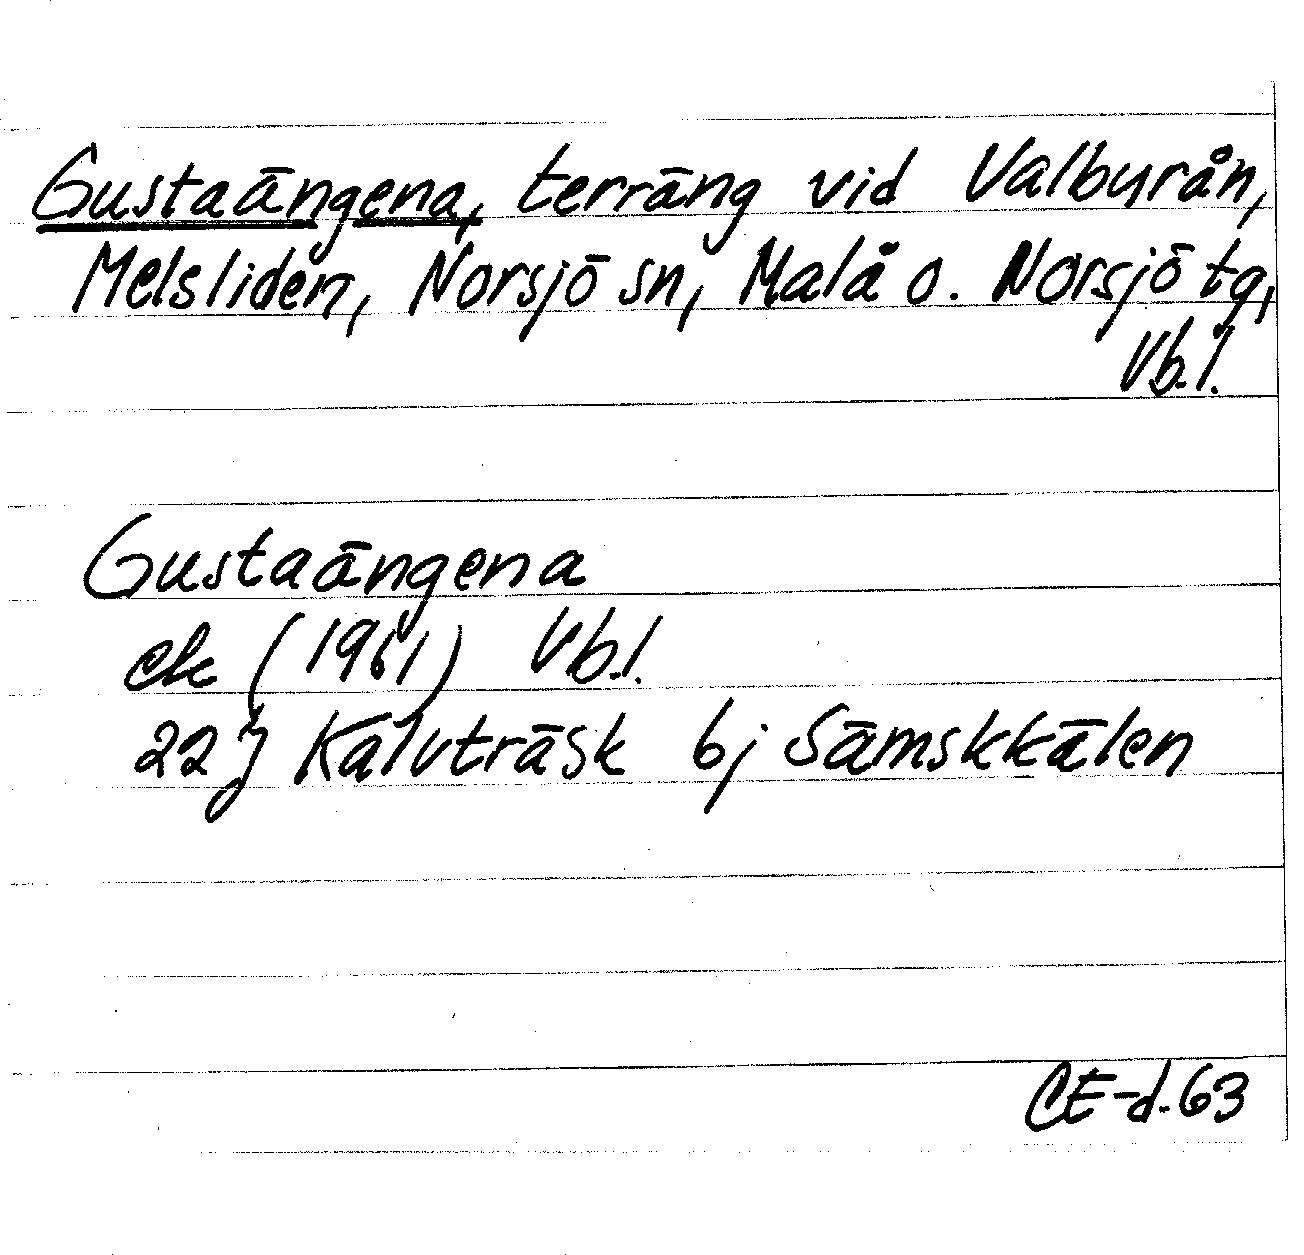 Gustaängena, terräng vid Valbyrån,
Melsliden, Norsjö sn, Malå o. Norsjö tg,
Vb.l.
Gustaängena
ek (1961) Vb.l.
22J Kalvträsk 6j Sämskkälen
CE-d.63